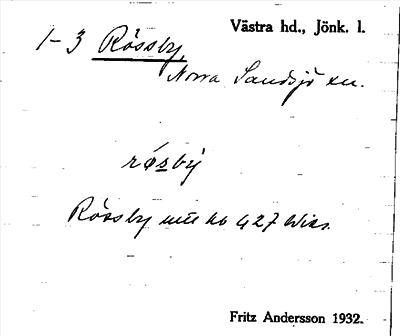 Västra hd., Jönk. l.
1-3 Rössby,
Norra Sandsjö sn.
rósbÿ
Rössby mtl no 427
Fritz Andersson 1932.